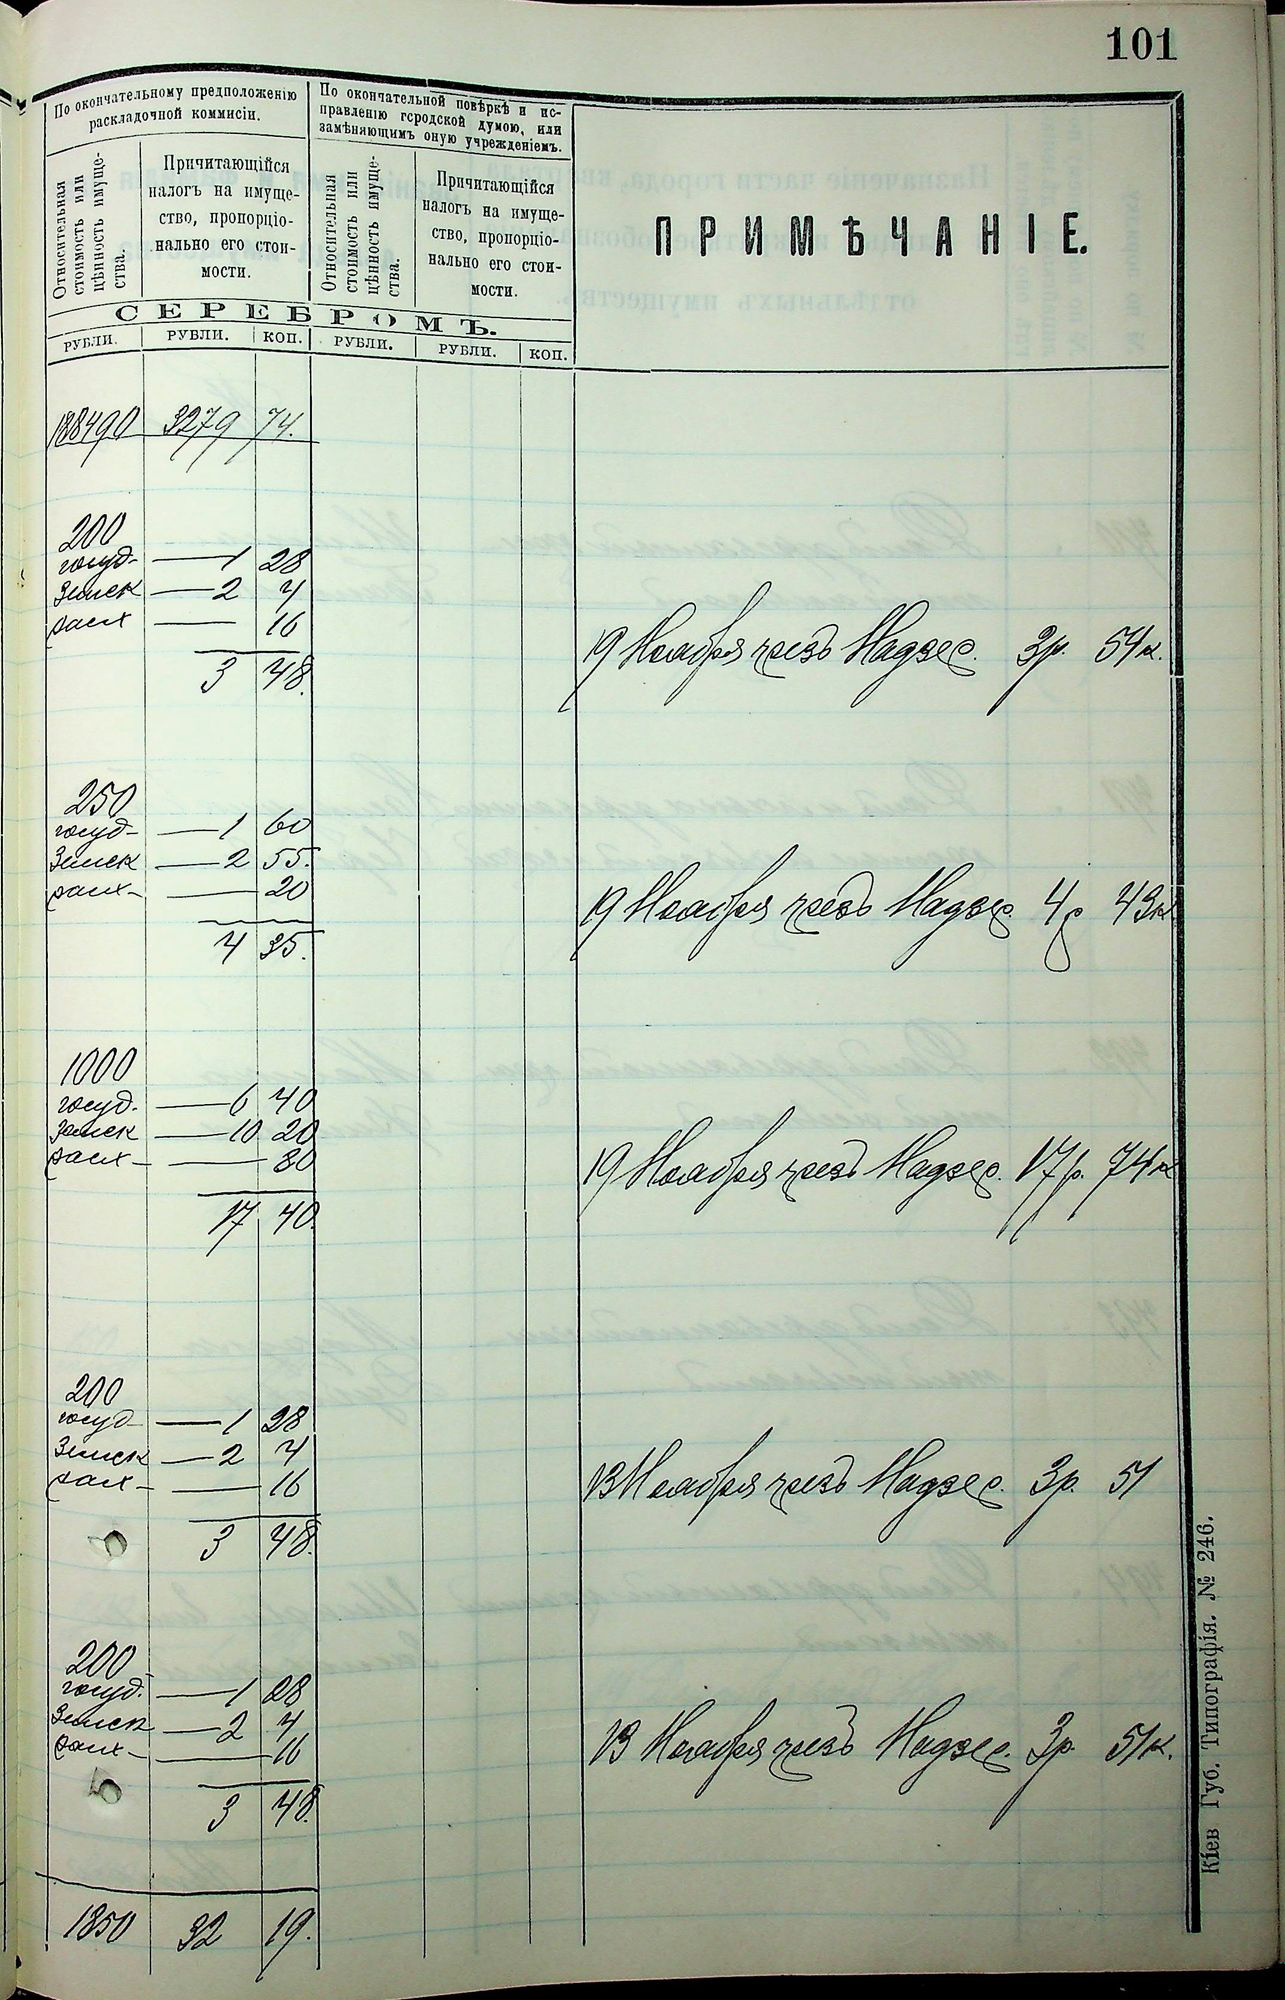 101
По окончательному предположенію
раскладочной коммисіи.
По окончательной повѣркѣ и ис-
правленію городской думою, или
замѣняющимъ оную учрежденіемъ.
Относительная
стоимость или
цѣнность имуще-
ства.
Причитающійся
налогъ на имуще-
ство, пропорціо-
нально его стои-
мости.
Относительная
стоимость или
цѣнность имуще-
ства.
Причитающійся
налогъ на имуще-
ство, пропорціо-
нально его стои-
мости.
ПРИМѢЧАНІЕ.
СЕРЕБРОМЪ.
РУБЛИ. РУБЛИ. КОП. РУБЛИ. РУБЛИ. КОП.
188490 3279 74.
200
госуд- 1 28
Земск 2 4
расх 16
3 48.
19 Ноября чрезъ Надзес. 3р. 54к.
250
госуд- 1 60
Земск 2 55.
расх- 20
4 35.
19 Ноября чрезъ Надзес. 4р 43к
1000
госуд. 6 40
Земск 10 20
расх- 80
17 40.
19 Ноября чрезъ Надзес. 17р. 74к
200
госуд- 1 28
Земск 2 4
расх- 16
3 48.
13 Ноября чрезъ Надзес. 3р. 51
200
госуд. 1 28
Земск 2 4
расх- 16
3 48.
13 Ноября чрезъ Надзес. 3р. 51к.
1850 32 19.
Кіев Губ. Типографія. № 246.